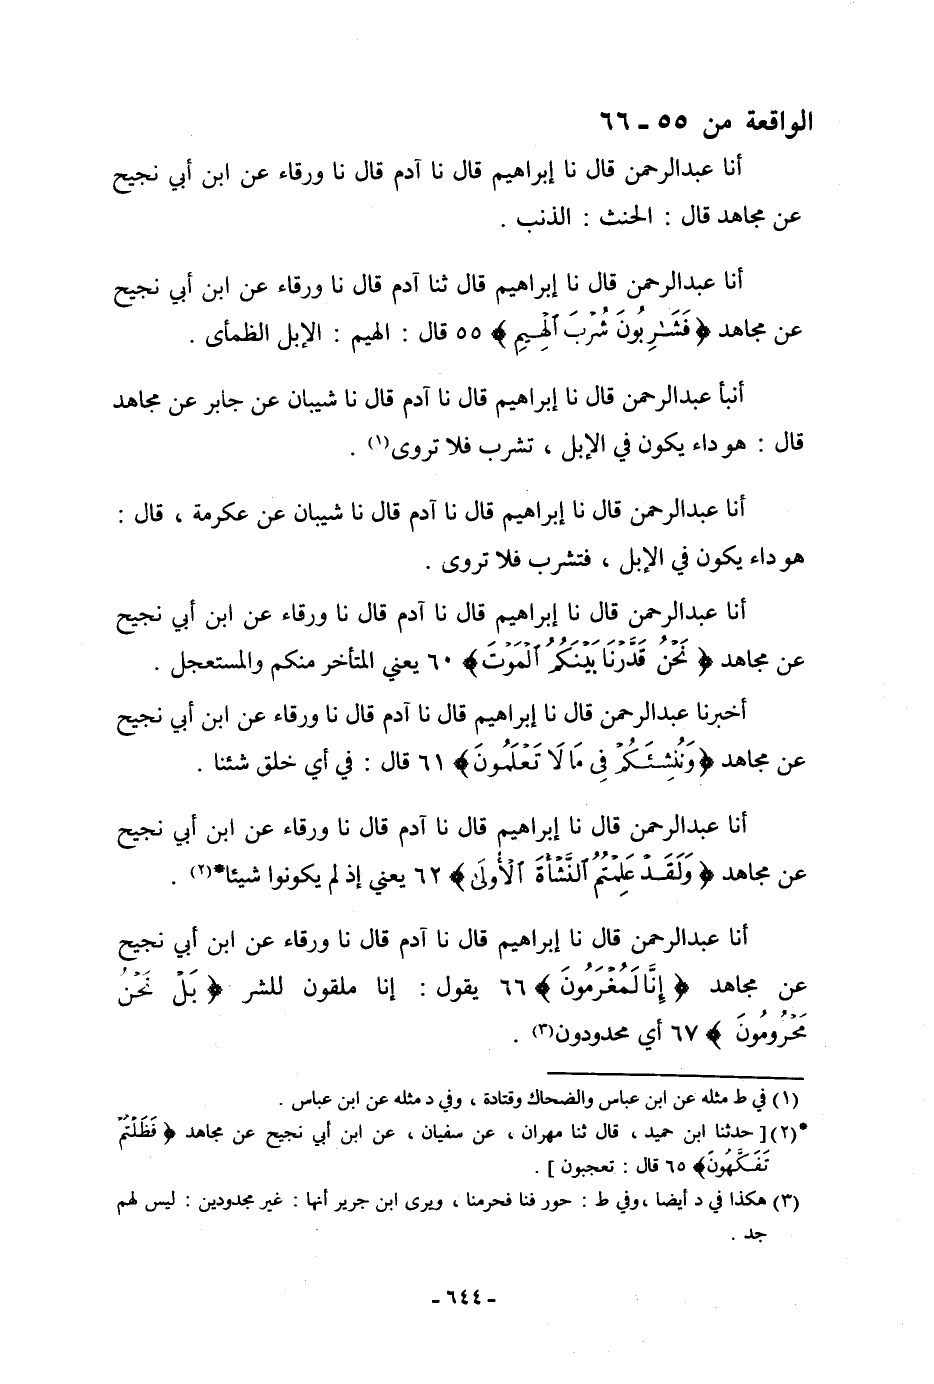 الواقعة من ٥٥ ـ ٦٦
أنا عبدالرحمن قال نا إبراهيم قال نا آدم قال نا ورقاء عن ابن أبي نجيح
عن مجاهد قال : الحنث : الذنب .
أنا عبدالرحمن قال نا إبراهيم قال ثنا آدم قال نا ورقاء عن ابن أبي نجيح
عن مجاهد ﴿ فَشَٰرِبُونَ شُرْبَ ٱلْهِيمِ ﴾ ٥٥ قال : الهيم : الإبل الظمأى .
أنبأ عبدالرحمن قال نا إبراهيم قال نا آدم قال نا شيبان عن جابر عن مجاهد
قال : هو داء يكون في الإبل ، تشرب فلا تروى(١) .
أنا عبدالرحمن قال نا إبراهيم قال نا آدم قال نا شيبان عن عكرمة ، قال :
هو داء يكون في الإبل ، فتشرب فلا تروى .
أنا عبدالرحمن قال نا إبراهيم قال نا آدم قال نا ورقاء عن ابن أبي نجيح
عن مجاهد ﴿ نَحْنُ قَدَّرْنَا بَيْنَكُمُ ٱلْمَوْتَ ﴾ ٦٠ يعني المتأخر منكم والمستعجل .
أخبرنا عبدالرحمن قال نا إبراهيم قال نا آدم قال نا ورقاء عن ابن أبي نجيح
عن مجاهد ﴿ وَنُنشِئَكُمْ فِى مَا لَا تَعْلَمُونَ ﴾ ٦١ قال : في أي خلق شئنا .
أنا عبدالرحمن قال نا إبراهيم قال نا آدم قال نا ورقاء عن ابن أبي نجيح
عن مجاهد ﴿ وَلَقَدْ عَلِمْتُمُ ٱلنَّشْأَةَ ٱلْأُولَىٰ ﴾ ٦٢ يعني إذ لم يكونوا شيئا*(٢) .
أنا عبدالرحمن قال نا إبراهيم قال نا آدم قال نا ورقاء عن ابن أبي نجيح
عن مجاهد ﴿ إِنَّا لَمُغْرَمُونَ ﴾ ٦٦ يقول : إنا ملقون للشر ﴿ بَلْ نَحْنُ
مَحْرُومُونَ ﴾ ٦٧ أي محدودون(٣) .
(١) في ط مثله عن ابن عباس والضحاك وقتادة ، وفي د مثله عن ابن عباس .
*(٢)[ حدثنا ابن حميد ، قال ثنا مهران ، عن سفيان ، عن ابن أبي نجيح عن مجاهد ﴿ فَظَلْتُمْ
تَفَكَّهُونَ ﴾ ٦٥ قال : تعجبون ] .
(٣) هكذا في د أيضا ، وفي ط : حور فنا فحرمنا ، ويرى ابن جرير أنها : غير مجدودين : ليس لهم
جد .
- ٦٤٤ -